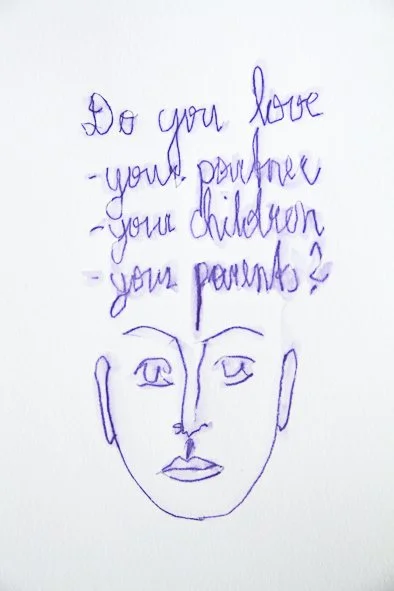 Do you love
- your partner
- your children
- your parents?